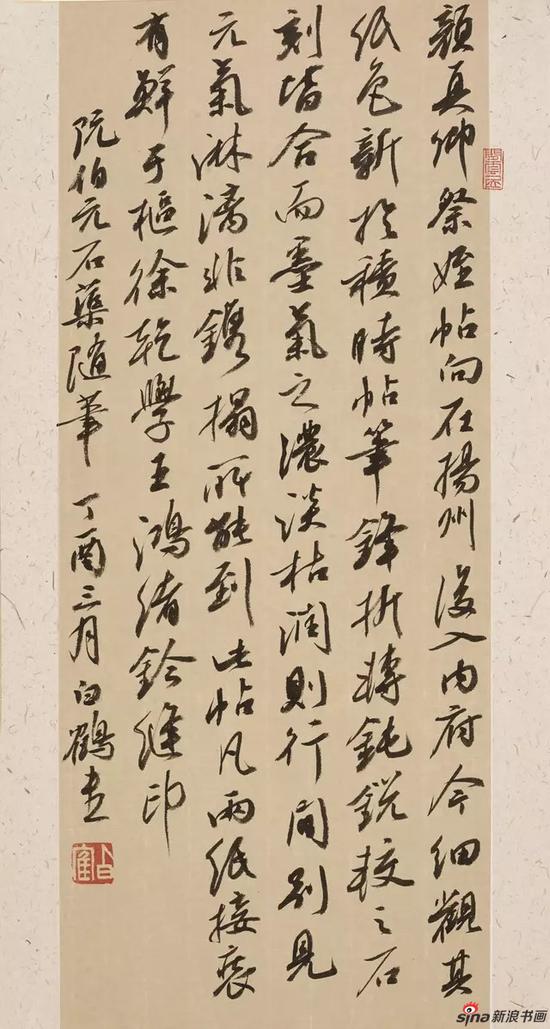 顏真卿祭姪帖向在揚州後入内府今細觀其
紙色新於積時帖筆鋒折轉鈍鋭較之石
刻皆合而墨氣之濃淡枯潤則行間別見
元氣淋漓非鐫搨所能到此帖凡兩紙接
有鮮于樞徐乾學王鴻緒鈐縫印
阮伯元石渠隨筆 丁酉三月白鶴书
白隺
sina新浪书画